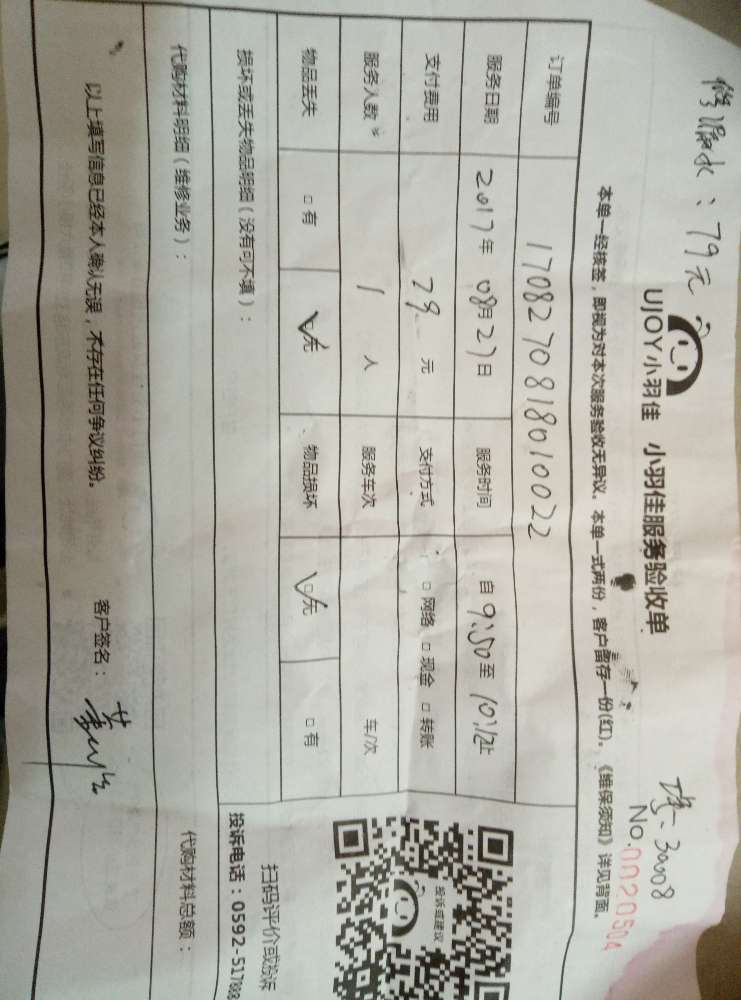 修漏水：79元
UJOY小羽佳 小羽佳服务验收单
No.0020504
本单一经核签，即视为对本次服务验收无异议。本单一式两份，客户留存一份(红)。《维保须知》详见背面。
订单编号 1708270818010022
服务日期 2017年08月27日 服务时间 自9:50至10:12止
支付费用 79元 支付方式 □网络 □现金 □转账
服务人数 1人 服务车次 车/次
物品丢失 □有 ☑无 物品损坏 ☑无 □有
损坏或丢失物品明细（没有可不填）：
投诉或建议
扫码评价或投诉
投诉电话：0592-517888
代购材料明细（维修业务）： 代购材料总额：
以上填写信息已经本人确认无误，不存在任何争议纠纷。 客户签名：